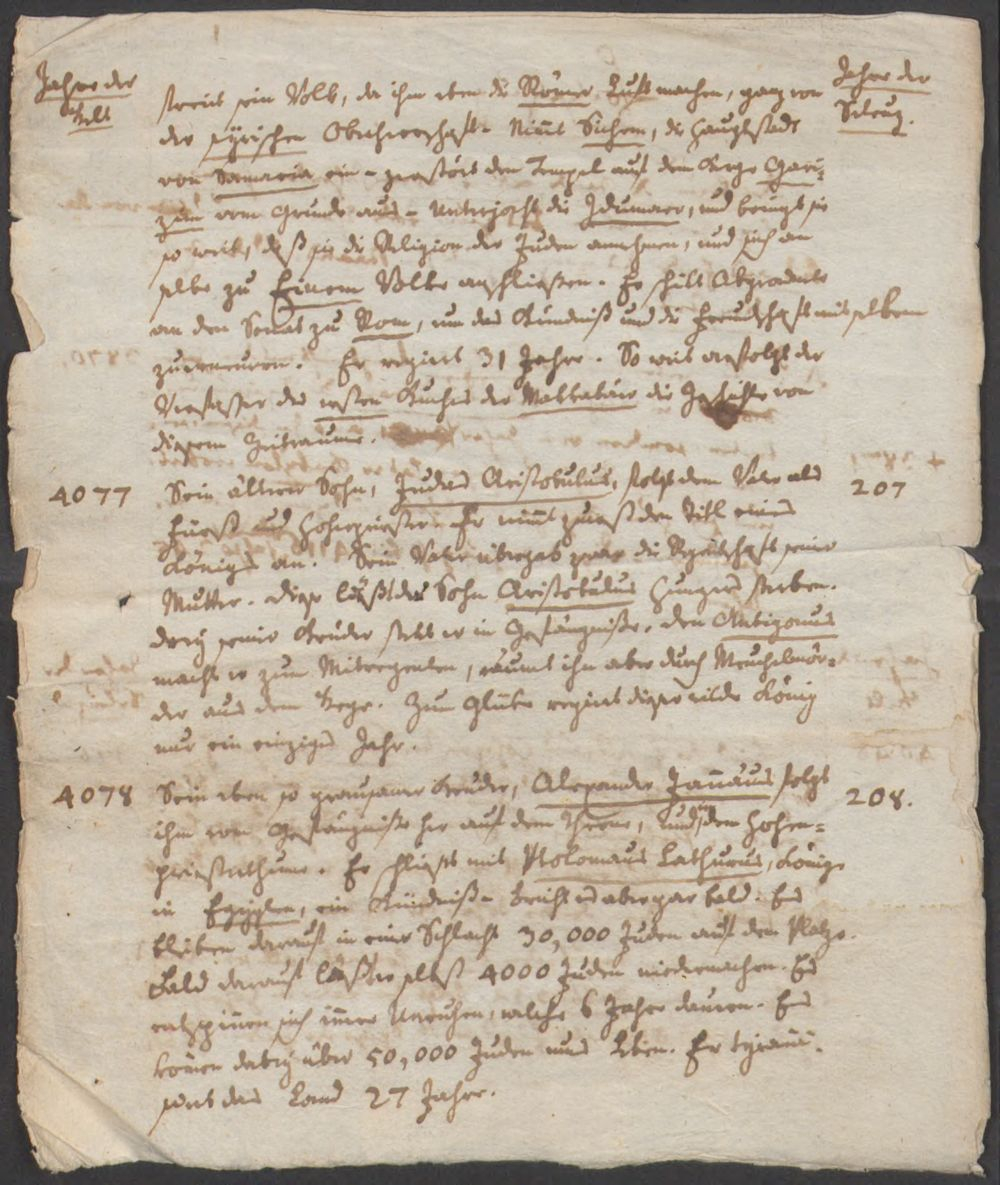 Jahre der
Welt
Jahre der
Seleuz.
befreit sein Volk, da ihm eben die Römer Luft machen, ganz von
der syrischen Oberherrschaft - Nim̅t Sichem, die Hauptstadt
von Samaria ein - zerstört den Tempel auf dem Berge Gari-
zim vom Grunde aus - Unterjocht die Idumaer, und bringt sie
so weit, daß sie die Religion der Juden annehmen, und sich an
selbe zu Einem Volke anschließen. Er schikt Abgesandte
an den Senat zu Rom, um das Bündniß und die Freundschaft mit selbem
zu erneuern. Er regiert 31 Jahre. So weit erfolgt der
Verfasser des ersten Buches der Makkabäer die Geschichte von
diesem Zeitraume.
4077 Sein älterer Sohn, Judas Aristobulus, folgt dem Vater als 207
Fürst und Hoherpriester. Er nim̅t zuerst den Titl eines
Königs an. Sein Vater übergab zwar die Regentschaft seiner
Mutter. Diese läßt der Sohn Aristobulus Hungers sterben.
drey seiner Brüder stekt er in Gefängniße, den Antigonus
macht er zum Mitregenten, räumt ihn aber durch Meuchelmör-
der aus dem Wege. Zum Glüke regiert dieser wilde König
nur ein einziges Jahr.
4078 Sein eben so grausamer Bruder, Alexander Jan̅äus folgt 208.
ihm vom Gefängniße her auf dem Throne, und im Hohen-
priesterthume. Er schließt mit Ptolomäus Lathurus, König
in Egypten, ein Bündniß - bricht es aber gar bald. Es
bleiben darauf in einer Schlacht 30,000 Juden auf dem Platze.
Bald darauf läßt er selbst 4000 Juden niedermachen. Es
entspinnen sich im̅er Unruhen, welche 6 Jahre dauern. Es
kom̅en dabey über 50,000 Juden ums Leben. Er tyran̅i-
sirt das Land 27 Jahre.